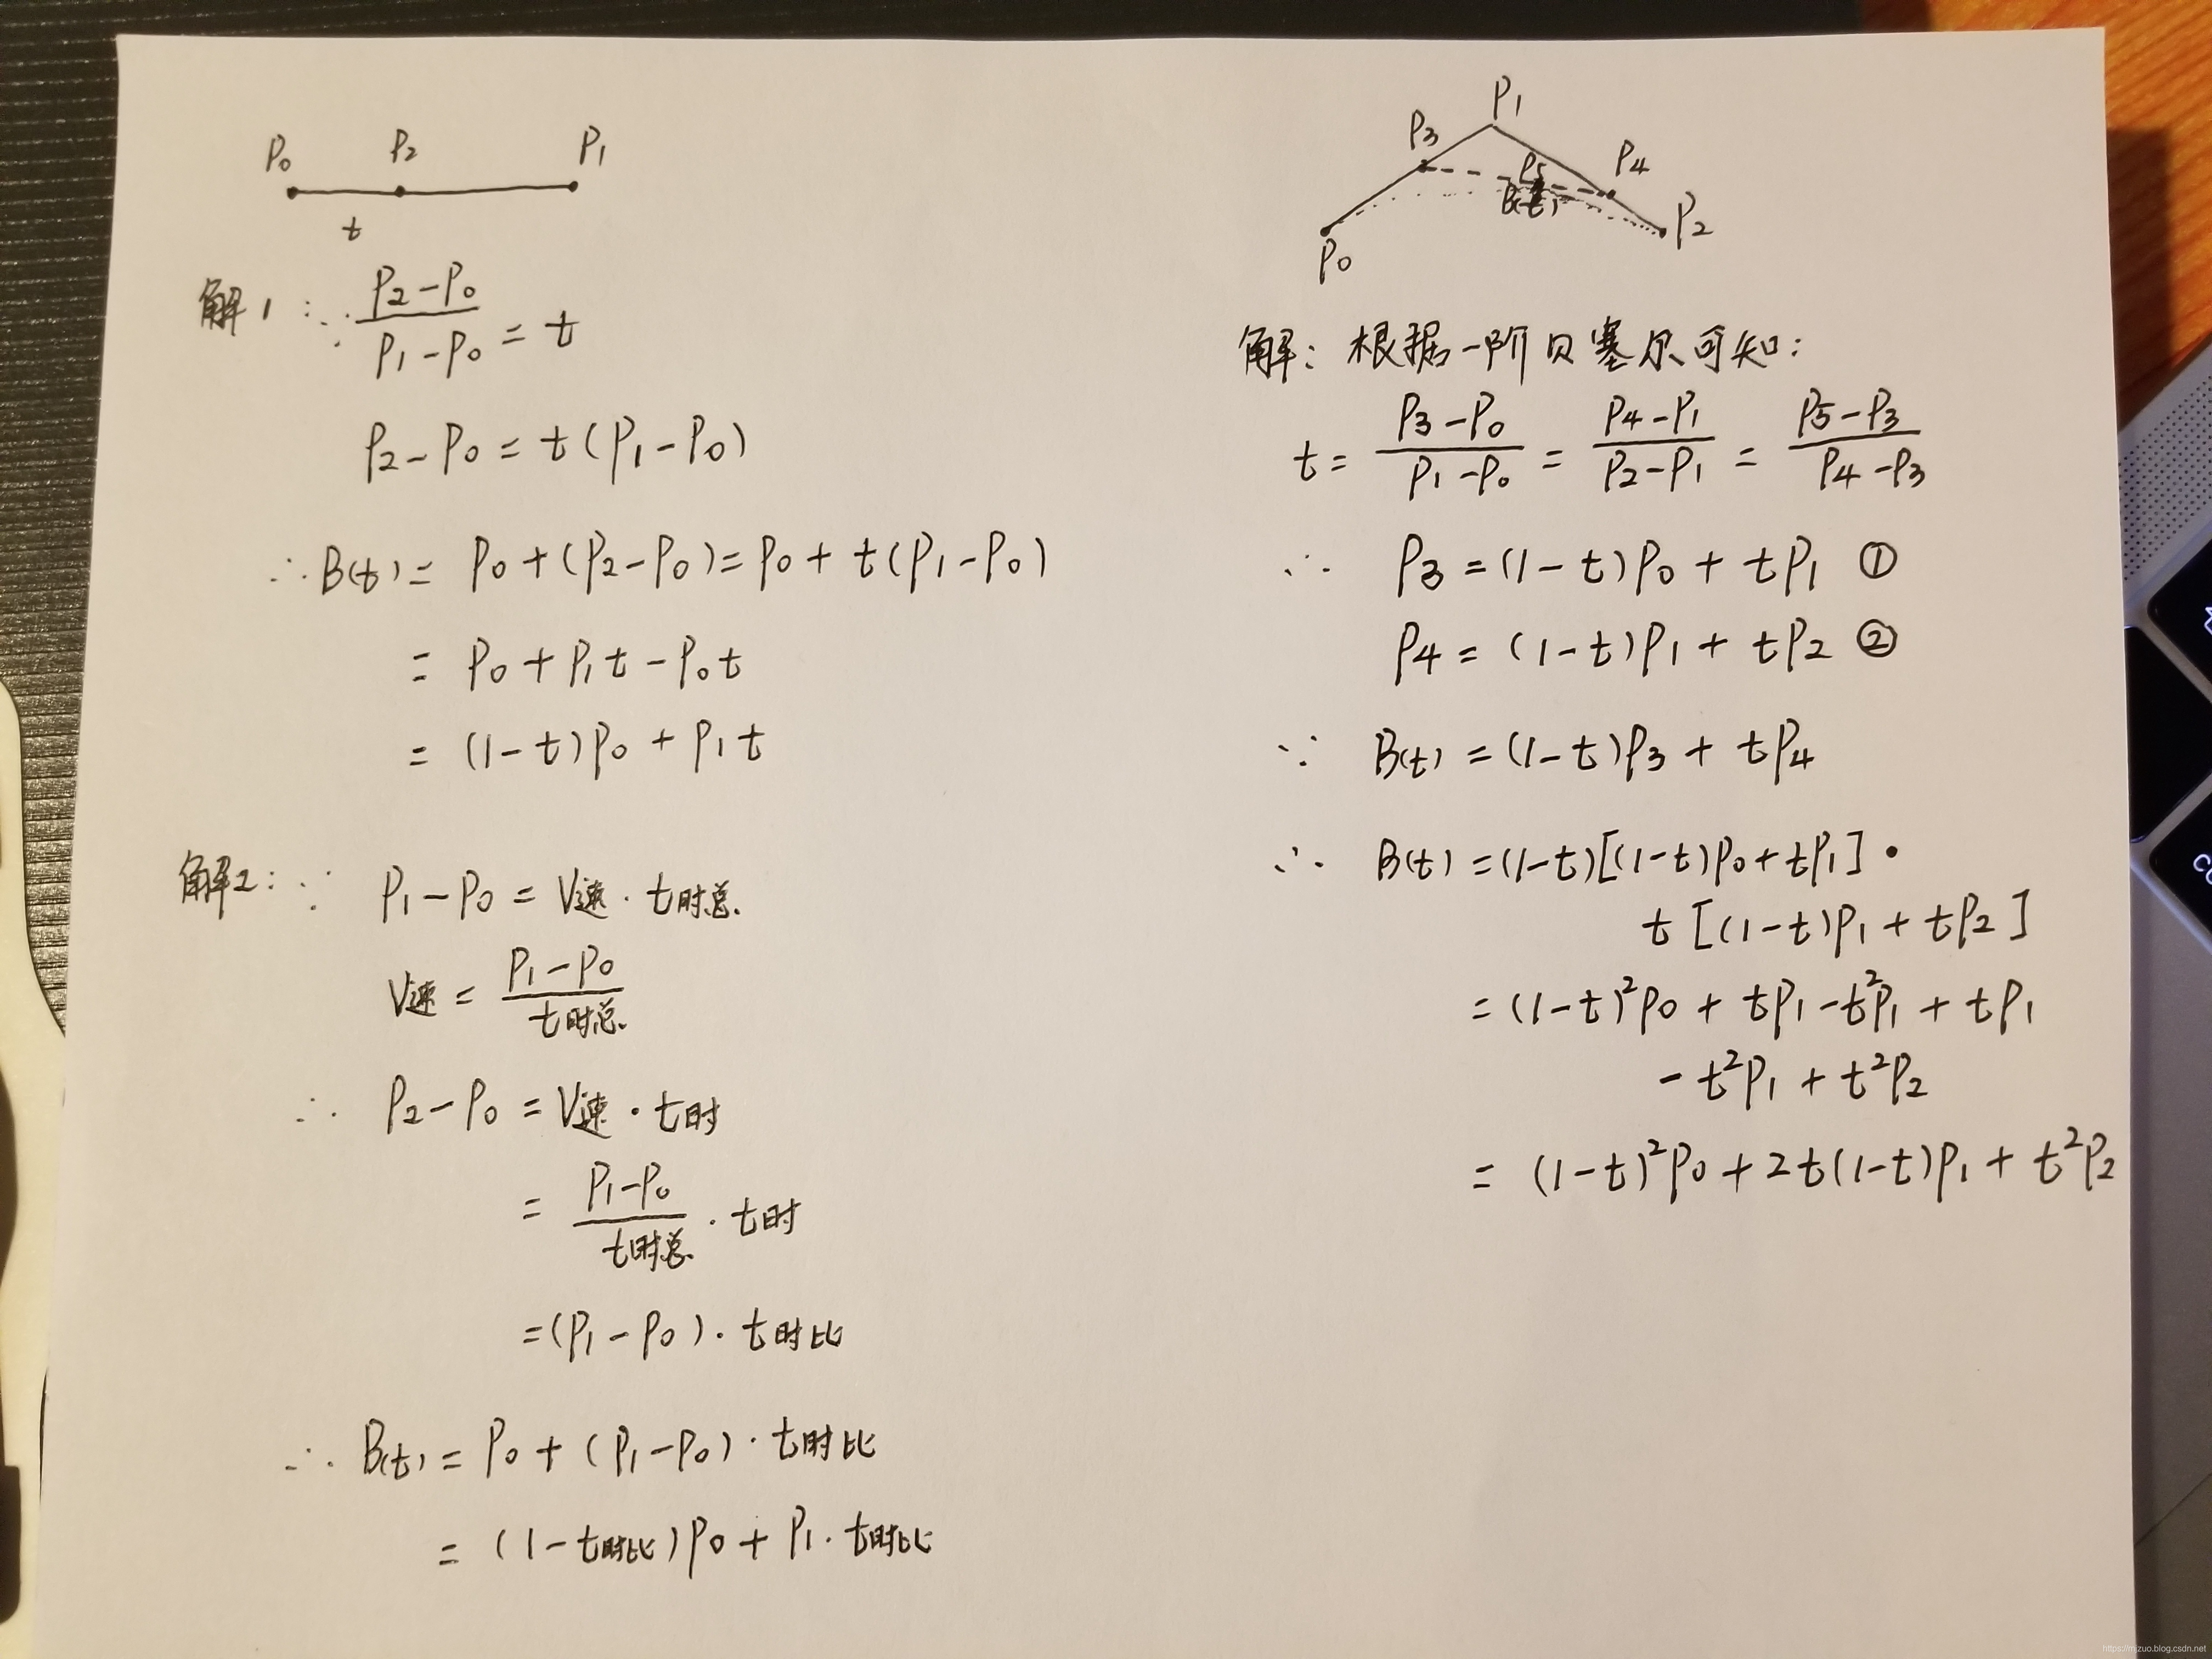 P₀ P₂ P₁
t
解1：∵ (P₂-P₀)/(P₁-P₀) = t
P₂-P₀ = t(P₁-P₀)
∴ B(t) = P₀+(P₂-P₀) = P₀+t(P₁-P₀)
= P₀+P₁t-P₀t
= (1-t)P₀+P₁t
解2：∵ P₁-P₀ = V速·t时总.
V速 = (P₁-P₀)/t时总.
∴ P₂-P₀ = V速·t时
= (P₁-P₀)/t时总.·t时
=(P₁-P₀)·t时比
∴ B(t) = P₀+(P₁-P₀)·t时比
= (1-t时比)P₀+P₁·t时比
P₁
P₃ P₅ P₄
B(t)
P₀ P₂
解：根据一阶贝塞尔可知：
t = (P₃-P₀)/(P₁-P₀) = (P₄-P₁)/(P₂-P₁) = (P₅-P₃)/(P₄-P₃)
∴ P₃=(1-t)P₀+tP₁ ①
P₄=(1-t)P₁+tP₂ ②
∵ B(t)=(1-t)P₃+tP₄
∴ B(t)=(1-t)[(1-t)P₀+tP₁]·
t[(1-t)P₁+tP₂]
=(1-t)²P₀+tP₁-t²P₁+tP₁
-t²P₁+t²P₂
= (1-t)²P₀+2t(1-t)P₁+t²P₂
https://mjzuo.blog.csdn.net